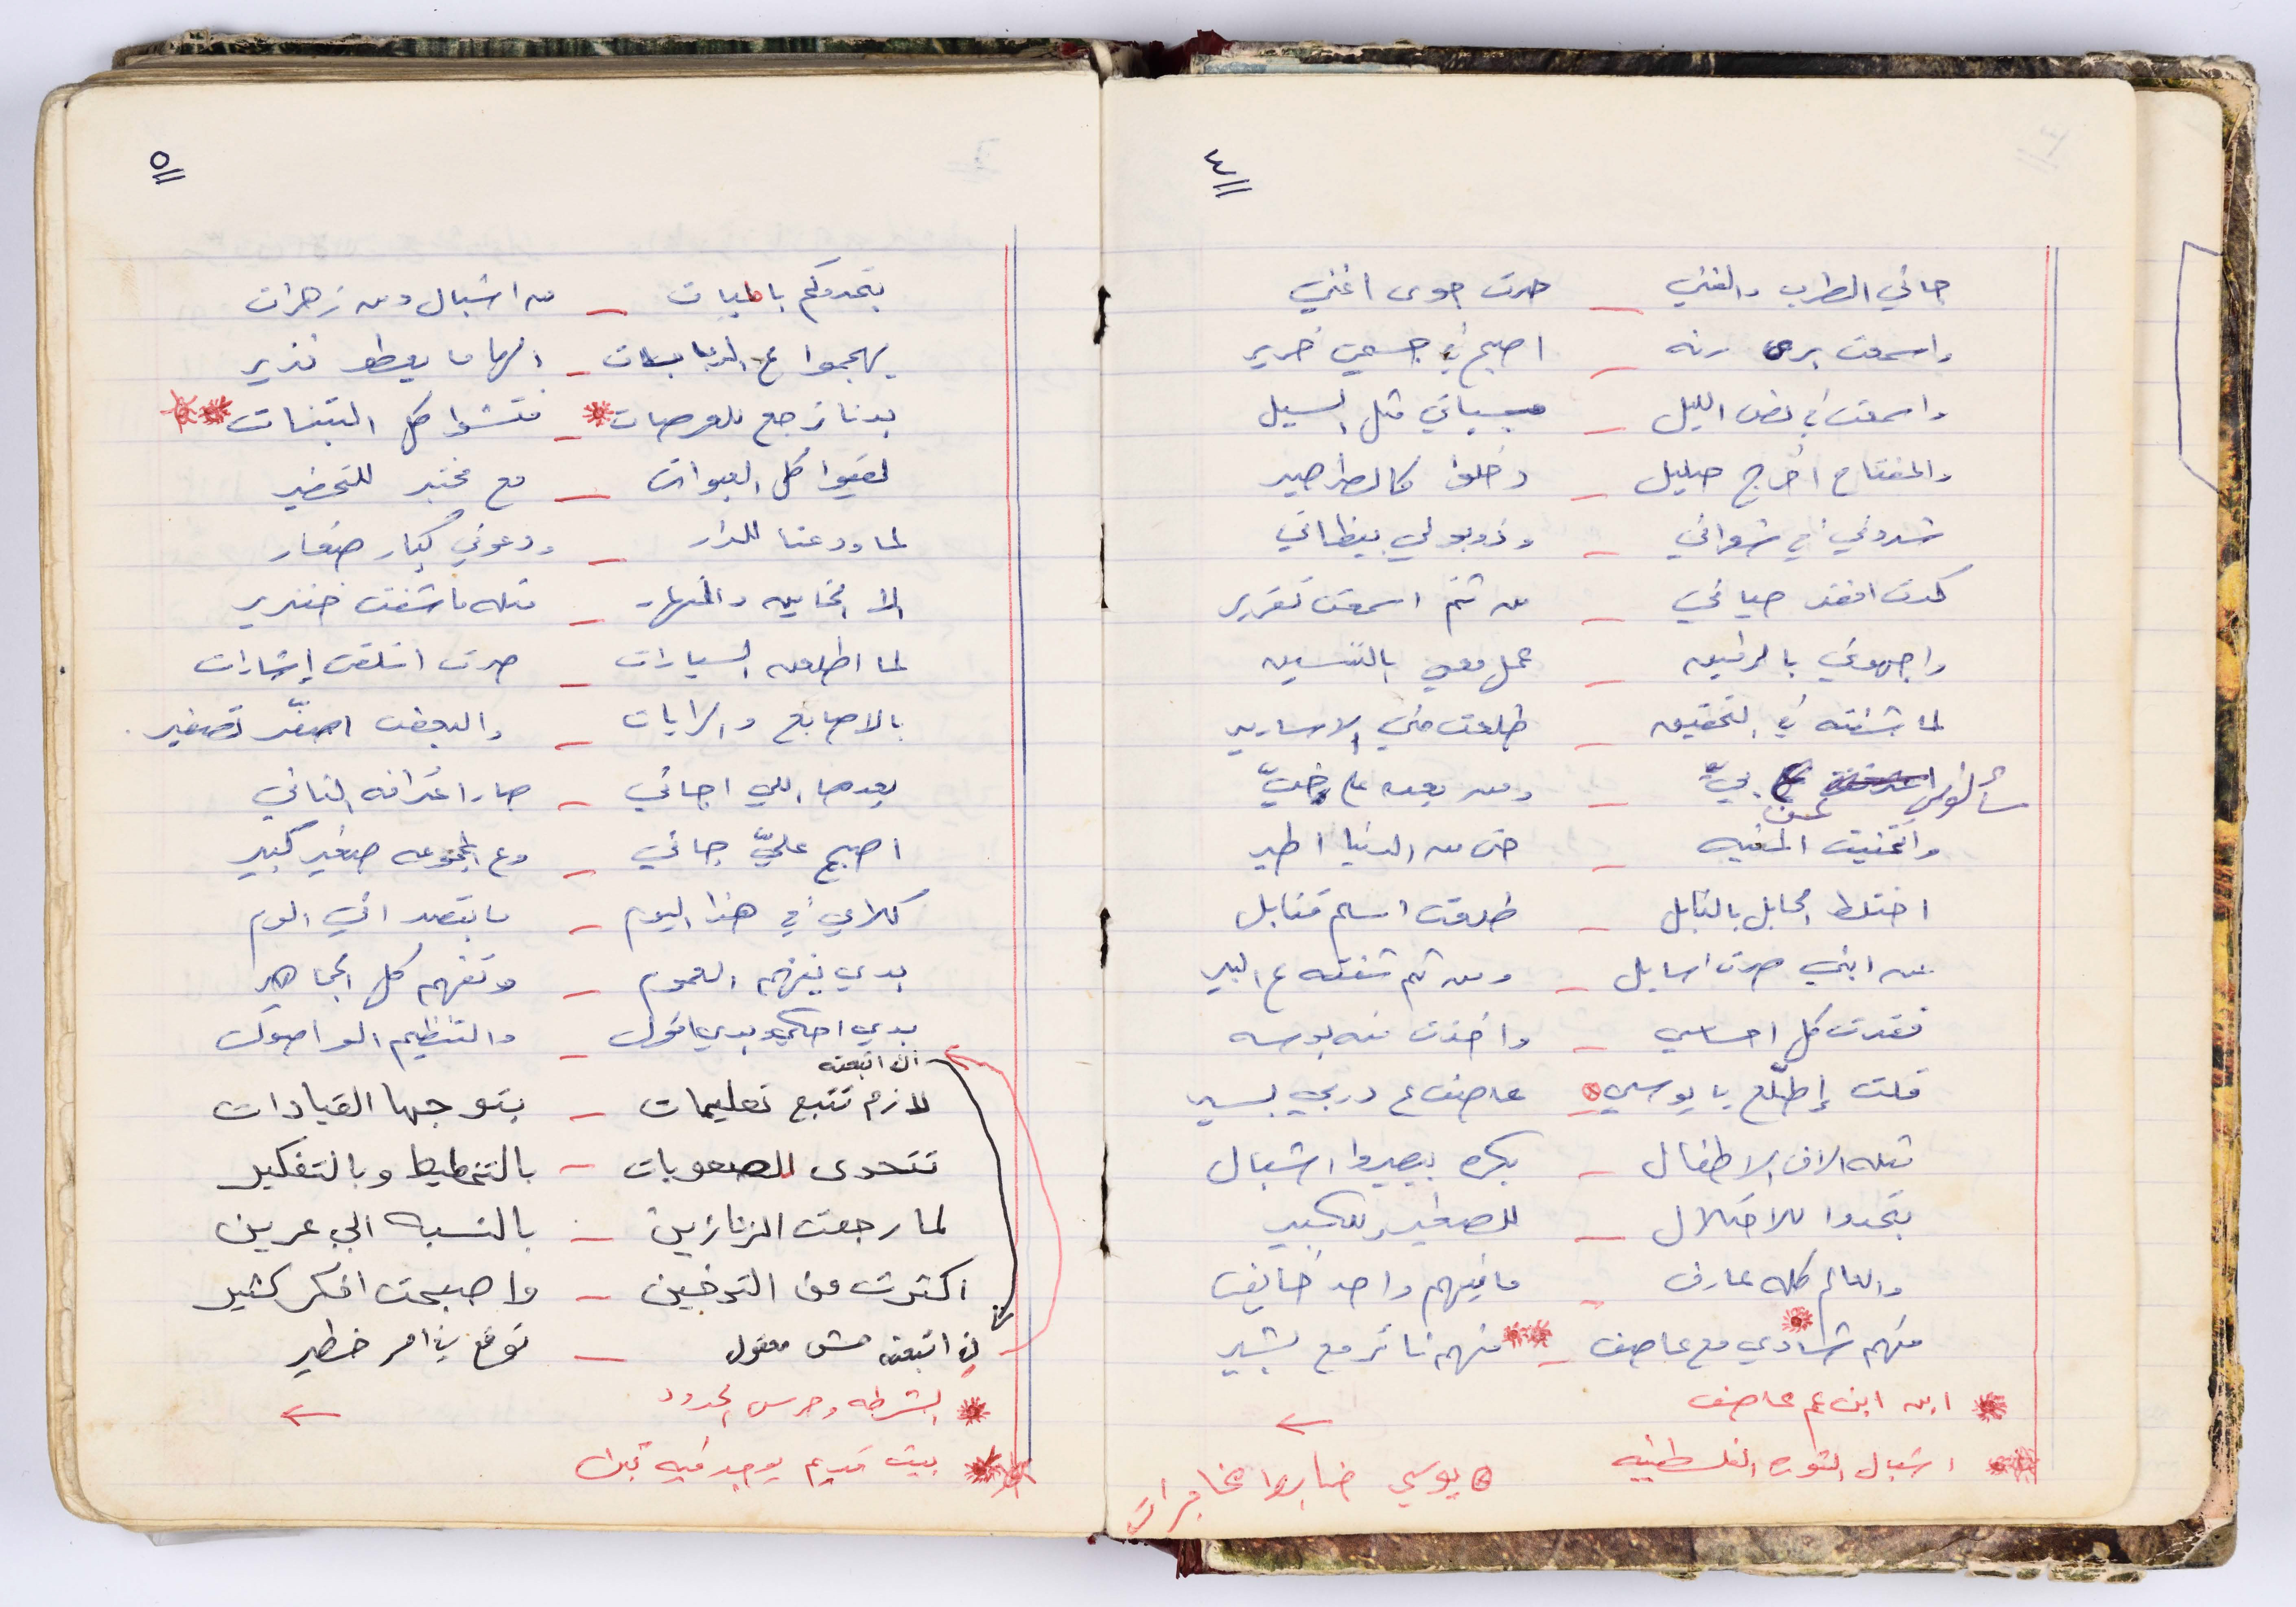 ٤
جاني الطرب والفني _ صرت جوى اغني
واسمعت برى رنه _ اصبح في جسمي خرير
واسمعت في نص الليل _ جاني مثل السيل
والمفتاح اخرج صليل _ دخلوا كالصراصير
شدوني في شعراتي _ وذوبولي بيظاتي
كدت افقد حياتي _ من ثم اسمعت تقرير
واجهوني بالرفيق _ عمل معي بالتنسيق
لما شفته في التحقيق _ طلعت مني الاسارير
سألوني عن بيّ _ ومن بعده على خيّ
واتمنيت المنيه _ حتى من الدنيا اطير
اختلط الحابل بالنابل _ طلعت اسلم قنابل
عن ابني صرت اسايل _ ومن ثم شفته ع البير
فقدت كل احساسي _ واخذت منه بوسه
قلت إطلّع يا يوسي _ عاصف ع دربي بسير
مثله الاف الاطفال _ بكره بيصيروا اشبال
بتحدوا للاحتلال _ للصغير وللكبير
والعالم كله عارف _ مافيهم واحد خايف
منهم شادي مع عاصف _ منهم ثائر مع بشير
ابن ابن عم عاصف
اشبال الثوره الفلسطينيه
يوسي ضابط مخابرات
٥
بتحدوكم بالمئات _ من اشبال ومن زهرات
يهجموا ع الدبابات _ الها ما يعطو نذير
بدنا نرجع للعرصات _ فتشوا كل التبنات
لقيوا كل العبوات _ مع مختبر للتحضير
لما ودعنا للدار _ ودعوني كبار صغار
الا الخاين والمنهار _ مثله ما شفت خنزير
لما اطلعن السيارات _ صرت اتلقى إشارات
بالاصابع والرايات _ والبعض اصفّر تصفير
بعدها اللي اجاني _ صار اعترافه الثاني
اصبح عليّ جاني _ وع المجموعه صغير كبير
كلامي في هذا اليوم _ ما بقصد اني الوم
بدي يفهم العموم _ وتفهم كل الجماهير
بدي احكي وبدي اقول _ والتنظيم الو اصول
لازم تتبع تعليمات _ بتوجها القيادات
تتحدى الصعوبات _ بالتخطيط وبالتفكير
لما رجعت الزنازين _ بالنسبه الي عرين
اكثرت من التدخين _ واصبحت افكر كثير
ان اتبعته مش معقول _ توقع في امر خطير
الشرطه وحرس الحدود
بيت قديم يوجد فيه تبن